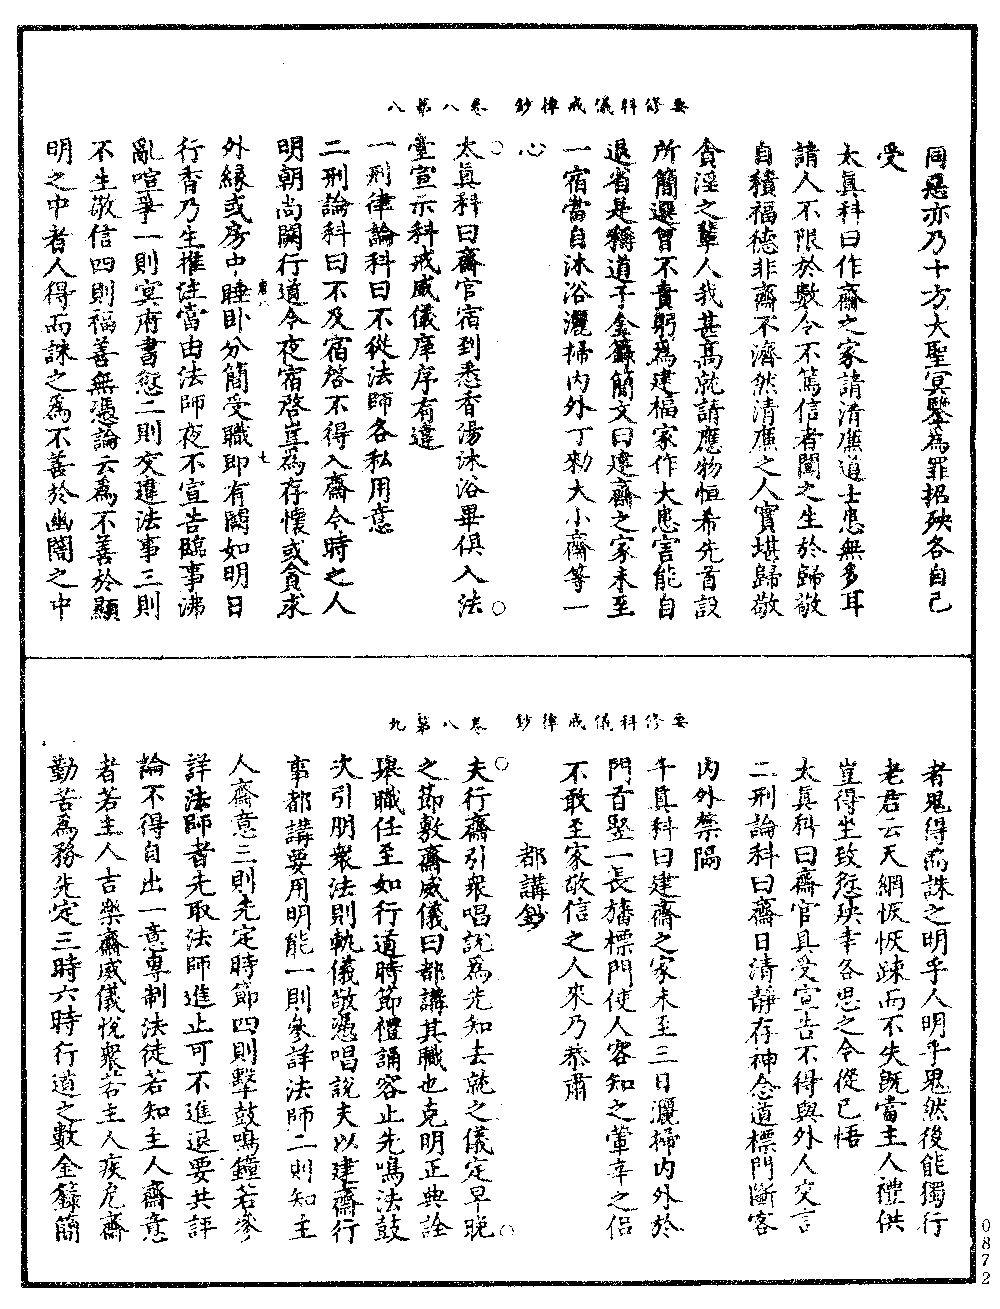 要修科儀戒律鈔　卷八第八
同惡亦乃十方大聖冥鑒為罪招殃各自己
受
太真科曰作齋之家請清廉道士患無多耳
請人不限於數令不篤信者聞之生於歸敬
自積福德非齋不濟然清廉之人實堪歸敬
貪淫之輩人我甚高就請應物恒希先首設
所簡選曾不責躬為建福家作大患害能自
退省是稱道子金籙簡文曰建齋之家未至
一宿當自沐浴灑掃內外丁勑大小齋等一
心
太真科曰齋官宿到悉香湯沐浴畢俱入法
堂宣示科戒威儀庠序有違
一刑律論科曰不從法師各私用意
二刑論科曰不及宿啓不得入齋今時之人
明朝尚闕行道今夜宿啓豈為存懷或貪求
外緣或房中睡卧分簡受職即有闕如明日
行香乃生推注當由法師夜不宣告臨事沸
亂喧爭一則冥府書愆二則交進法事三則
不生敬信四則福善無憑論云為不善於顯
明之中者人得而誅之為不善於幽闇之中
要修科儀戒律鈔　卷八第九
者鬼得而誅之明乎人明乎鬼然後能獨行
老君云天網恢恢踈而不失旣當主人禮供
豈得坐致愆殃幸各思之令從已悟
太真科曰齋官具受宣告不得與外人交言
二刑論科曰齋日清靜存神念道標門斷客
內外禁隔
千真科曰建齋之家未至三日灑掃內外於
門首竪一長旛標門使人客知之葷辛之侶
不敢至家敬信之人來乃恭肅
都講鈔
夫行齋引衆唱說為先知去就之儀定早晚
之節敷齋威儀曰都講其職也克明正典詮
舉職任至如行道時節禮誦容止先鳴法鼓
次引朋衆法則軌儀敬憑唱說夫以建齋行
事都講要用明能一則參詳法師二則知主
人齋意三則先定時節四則擊鼓鳴鐘若參
詳法師者先取法師進止可不進退要共評
論不得自出一意專制法徒若知主人齋意
者若主人吉樂齋威儀悅衆若主人疾危齋
勤苦為務先定三時六時行道之數金籙簡
0872